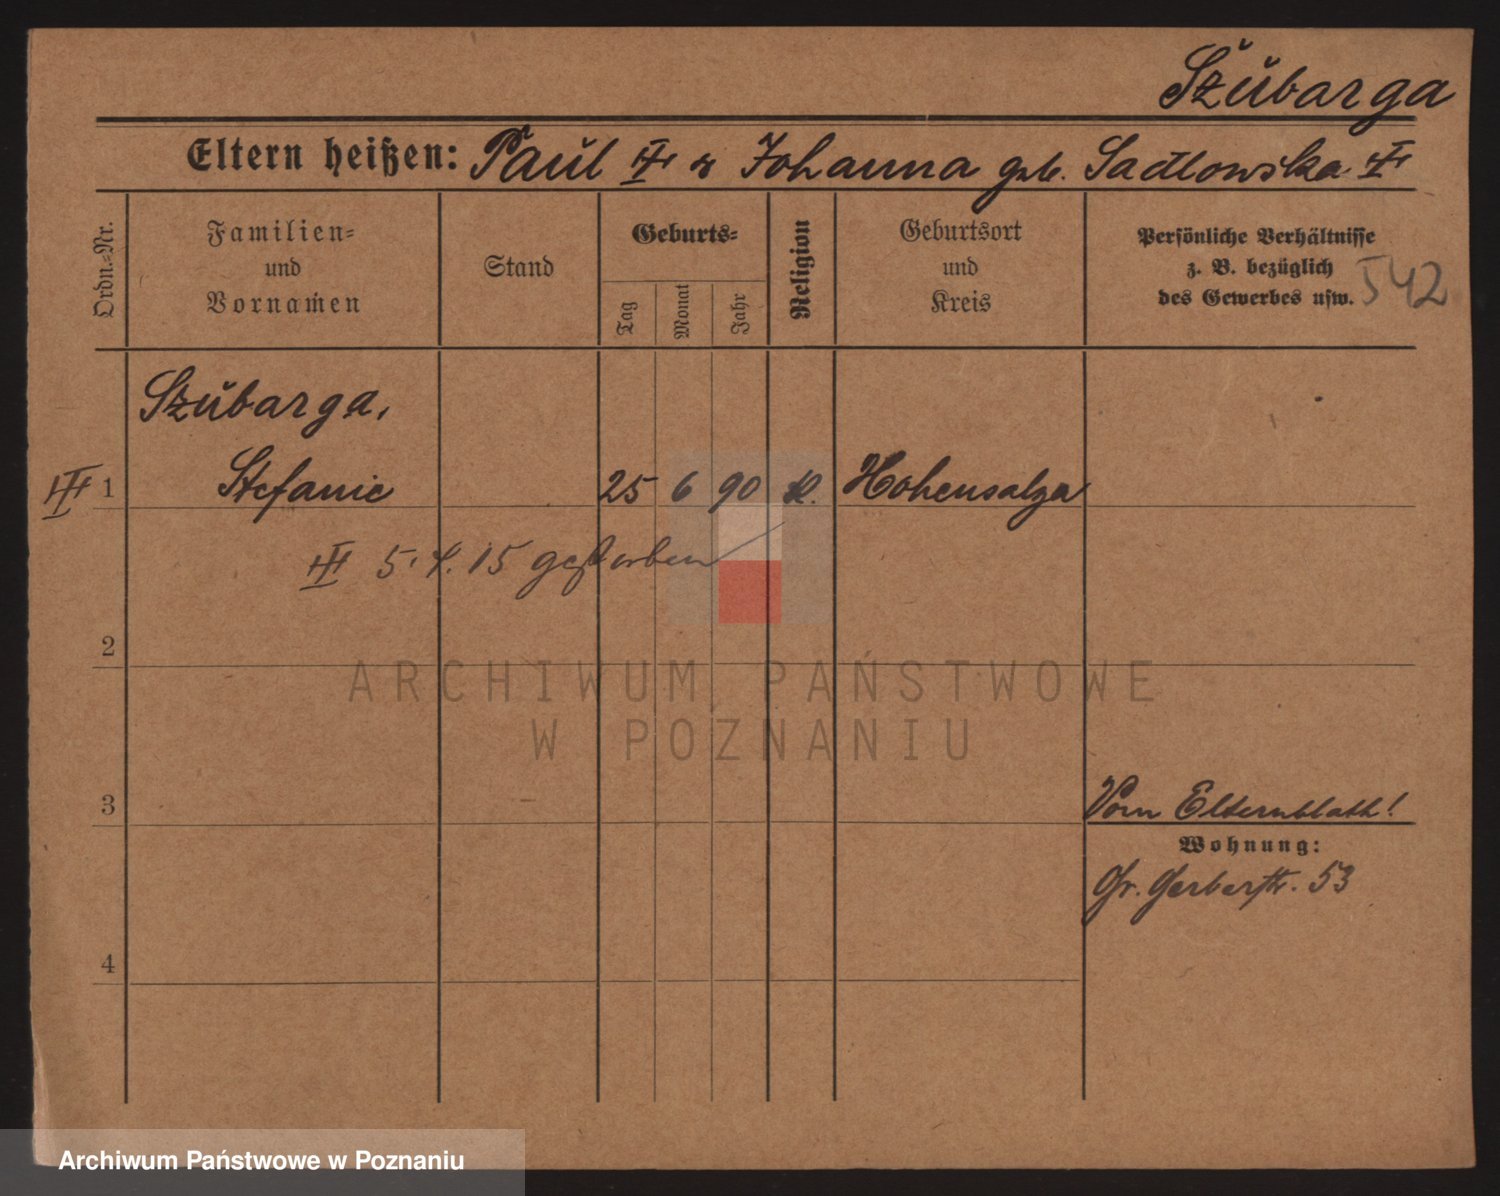 Szubarga
Eltern heißen: Paul ☩ & Johanna geb. Sadlowska ☩
Ordn.-Nr.
Familien-
und
Vornamen
Stand
Geburts-
Tag
Monat
Jahr
Religion
Geburtsort
und
Kreis
Persönliche Verhältnisse
z. B. bezüglich
des Gewerbes usw.
542
Szubarga,
1 Stefanie 25 6 90 K. Hohensalza
5. 4. 15 gestorben
2
ARCHIWUM PAŃSTWOWE
W POZNANIU
3
Vom Elternblatt!
Wohnung:
Gr. Gerberstr. 53
4
Archiwum Państwowe w Poznaniu